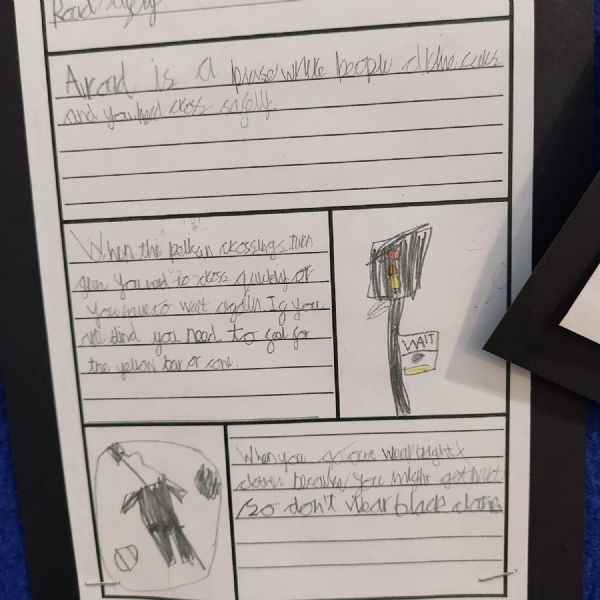 Road safety
A road is a place where people drive cars
and you need cross safely.
When the pelican crossings turn
green you need to cross quickly or
you have to wait again. If you
are blind you need to feel for
the yellow bar or cone.
WAIT
When you go out wear bright
clothes because you might get hurt.
So don't wear black clothes